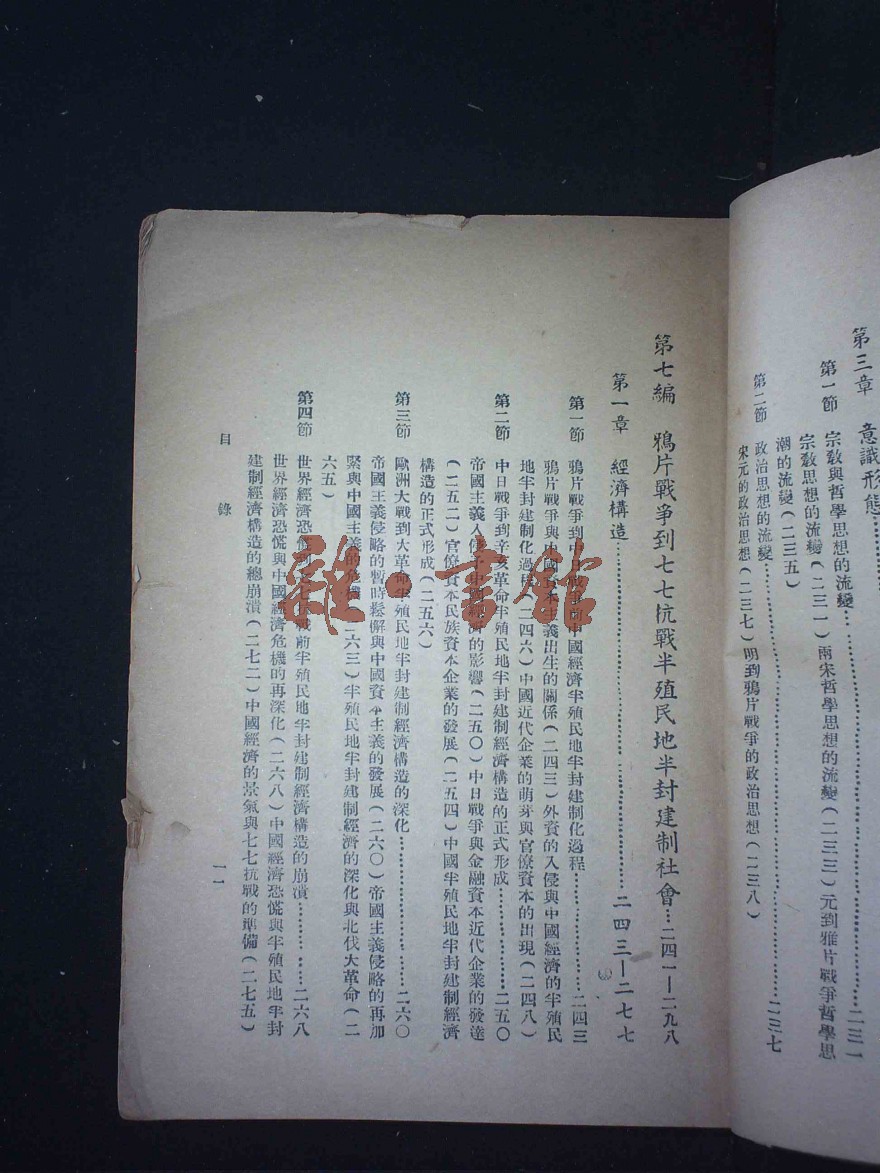 第三章 意識形態
第一節 宗敎與哲學思想的流變……二三一
宗敎思想的流變（二三一）兩宋哲學思想的流變（二三三）元到雅片戰爭哲學思
潮的流變（二三五）
第二節 政治思想的流變……二三七
宋元的政治思想（二三七）明到鴉片戰爭的政治思想（二三八）
第七編 鴉片戰爭到七七抗戰半殖民地半封建制社會…二四一—二九八
第一章 經濟構造……二四三—二七七
第一節 鴉片戰爭到中日戰爭前中國經濟半殖民地半封建制化過程……二四三
鴉片戰爭與中國資本主義出生的關係（二四三）外資的入侵與中國經濟的半殖民
地半封建制化過程（二四六）中國近代企業的萌芽與官僚資本的出現（二四八）
第二節 中日戰爭到辛亥革命半殖民地半封建制經濟構造的正式形成……二五〇
帝國主義入侵對中國經濟的影響（二五〇）中日戰爭與金融資本近代企業的發達
（二五二）官僚資本民族資本企業的發展（二五四）中國半殖民地半封建制經濟
構造的正式形成（二五六）
第三節 歐洲大戰到大革命半殖民地半封建制經濟構造的深化……二六〇
帝國主義侵略的暫時鬆懈與中國資本主義的發展（二六〇）帝國主義侵略的再加
緊與中國主義的危機（二六三）半殖民地半封建制經濟的深化與北伐大革命（二
六五）
第四節 世界經濟恐慌到七七抗戰前半殖民地半封建制經濟構造的崩潰……二六八
世界經濟恐慌與中國經濟危機的再深化（二六八）中國經濟恐慌與半殖民地半封
建制經濟構造的總崩潰（二七二）中國經濟的景氣與七七抗戰的準備（二七五）
目錄
一一
雜·書館